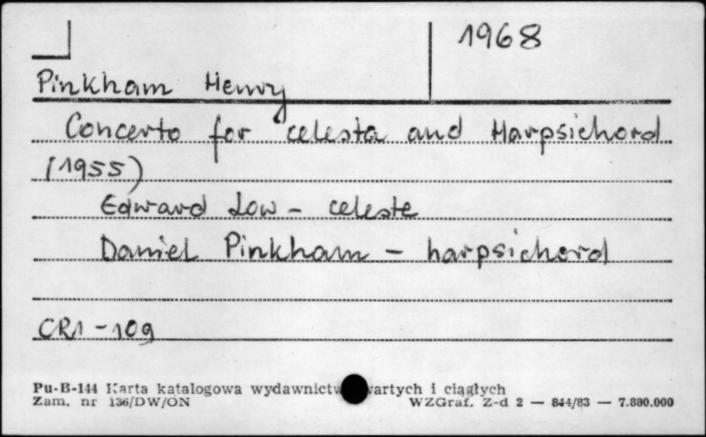 1968
Pinkham Henry
Concerto for celesta and Harpsichord
(1955)
Edward Low - celeste
Daniel Pinkham - harpsichord
CRI - 109
Pu-B-144 Karta katalogowa wydawnictw wartych i ciągłych
Zam. nr 136/DW/ON WZGraf. Z-d 2 — 844/83 — 7.880.000